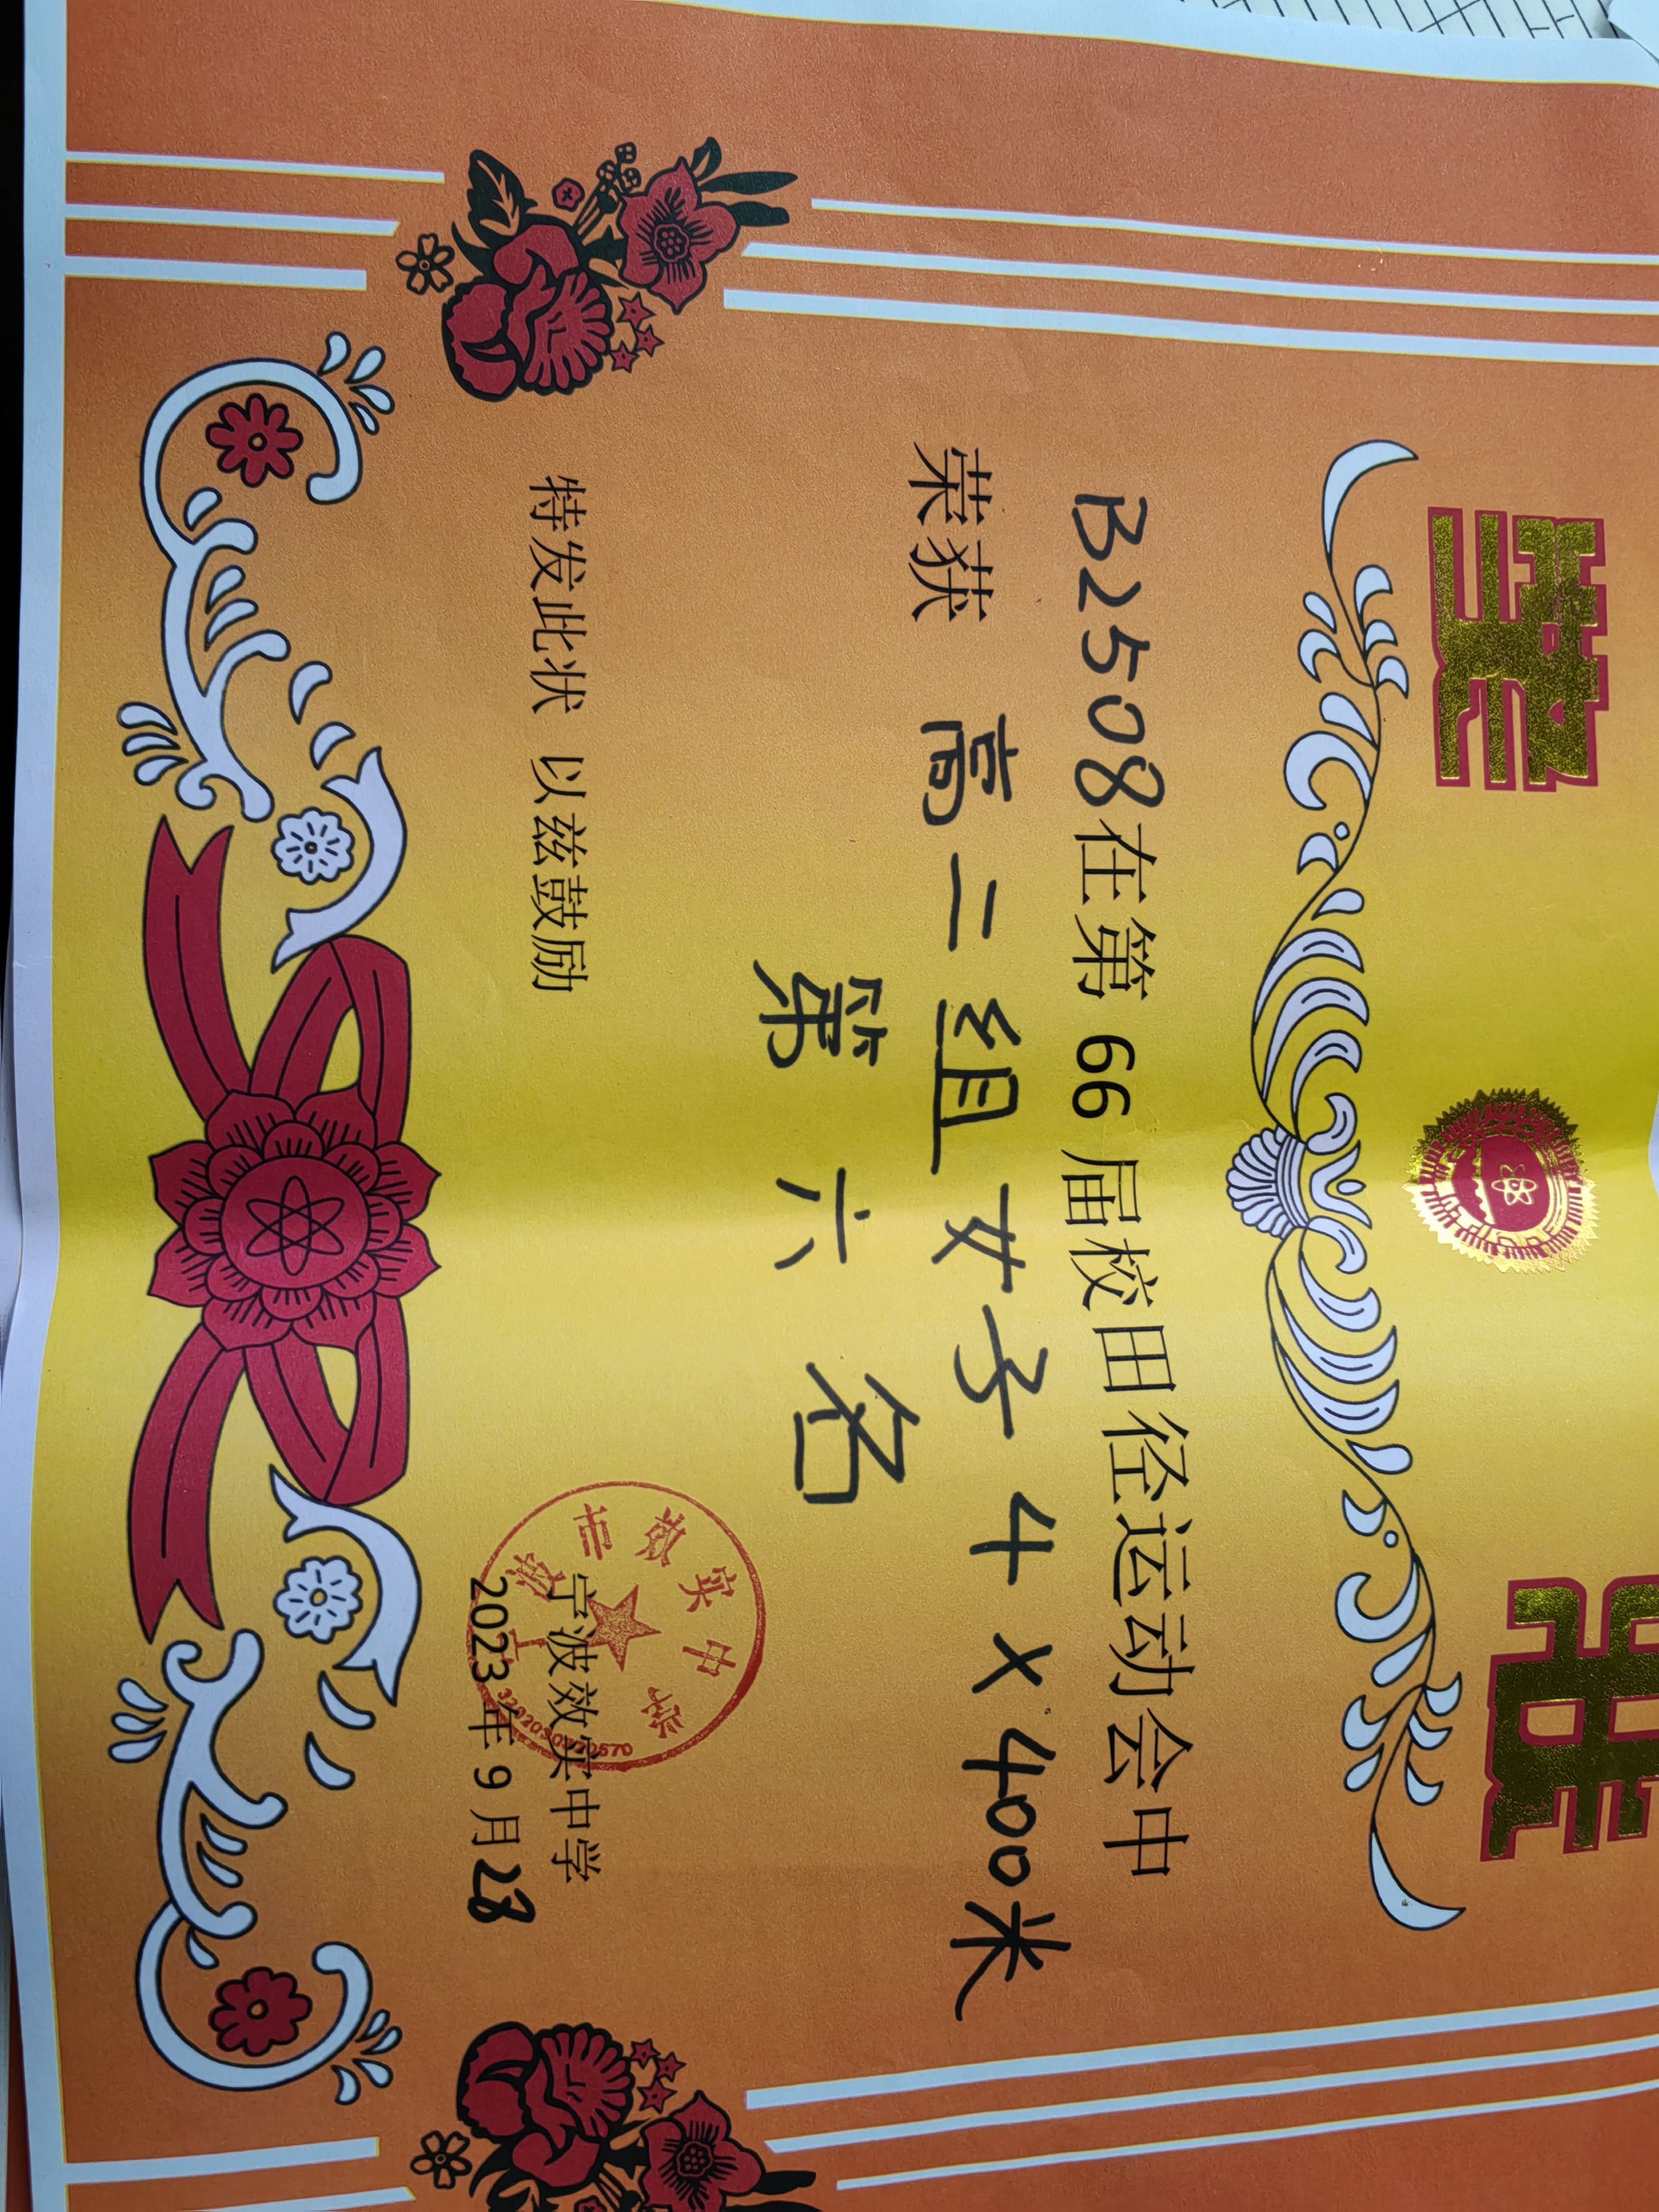 奖 状
B2508在第 66 届校田径运动会中
荣获 高二组女子4×400米
第六名
特发此状 以兹鼓励
宁波效实中学
2023年 9 月28